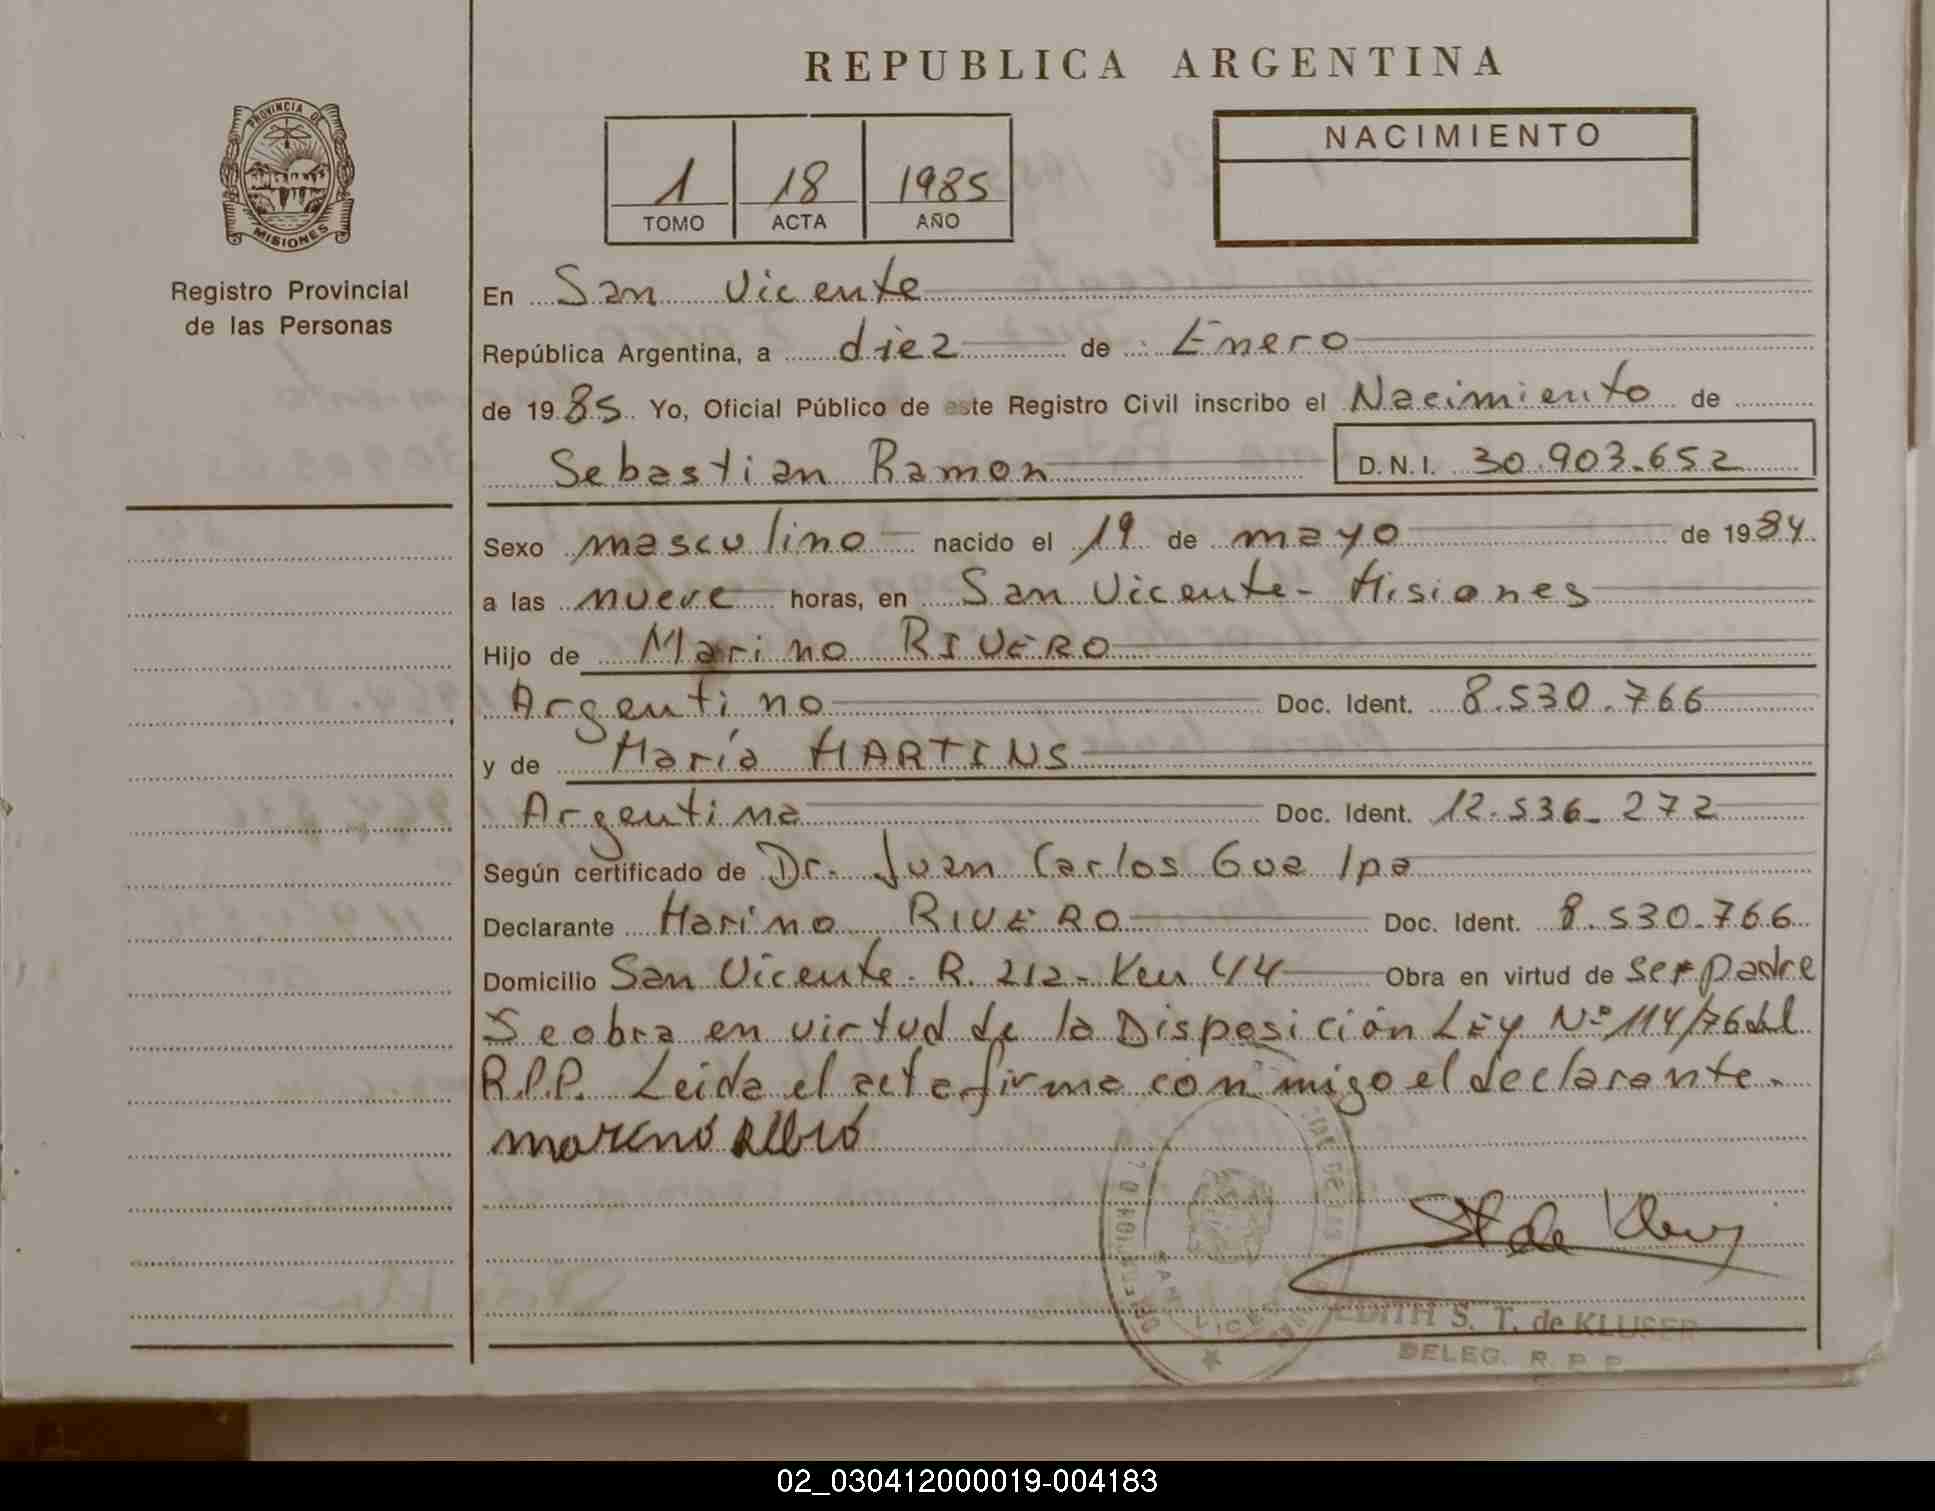 REPUBLICA ARGENTINA
PROVINCIA DE
MISIONES
Registro Provincial
de las Personas
1 18 1985
TOMO ACTA AÑO
NACIMIENTO
En San Vicente
República Argentina, a diez de Enero
de 1985 Yo, Oficial Público de este Registro Civil inscribo el Nacimiento de
Sebastian Ramon D.N.I. 30.903.652
Sexo masculino nacido el 19 de mayo de 1984
a las nueve horas, en San Vicente - Misiones
Hijo de Marino RIVERO
Argentino Doc. Ident. 8.530.766
y de María MARTINS
Argentina Doc. Ident. 12.536.272
Según certificado de Dr. Juan Carlos Gualpa
Declarante Marino RIVERO Doc. Ident. 8.530.766
Domicilio San Vicente - R. 212 - Km 44 Obra en virtud de ser padre
Se obra en virtud de la Disposición LEY Nº 114/76 del
R.P.P. Leida el acta firma conmigo el declarante.
EDITH S. T. de KLUSER
DELEG. R. P. P.
02_030412000019-004183